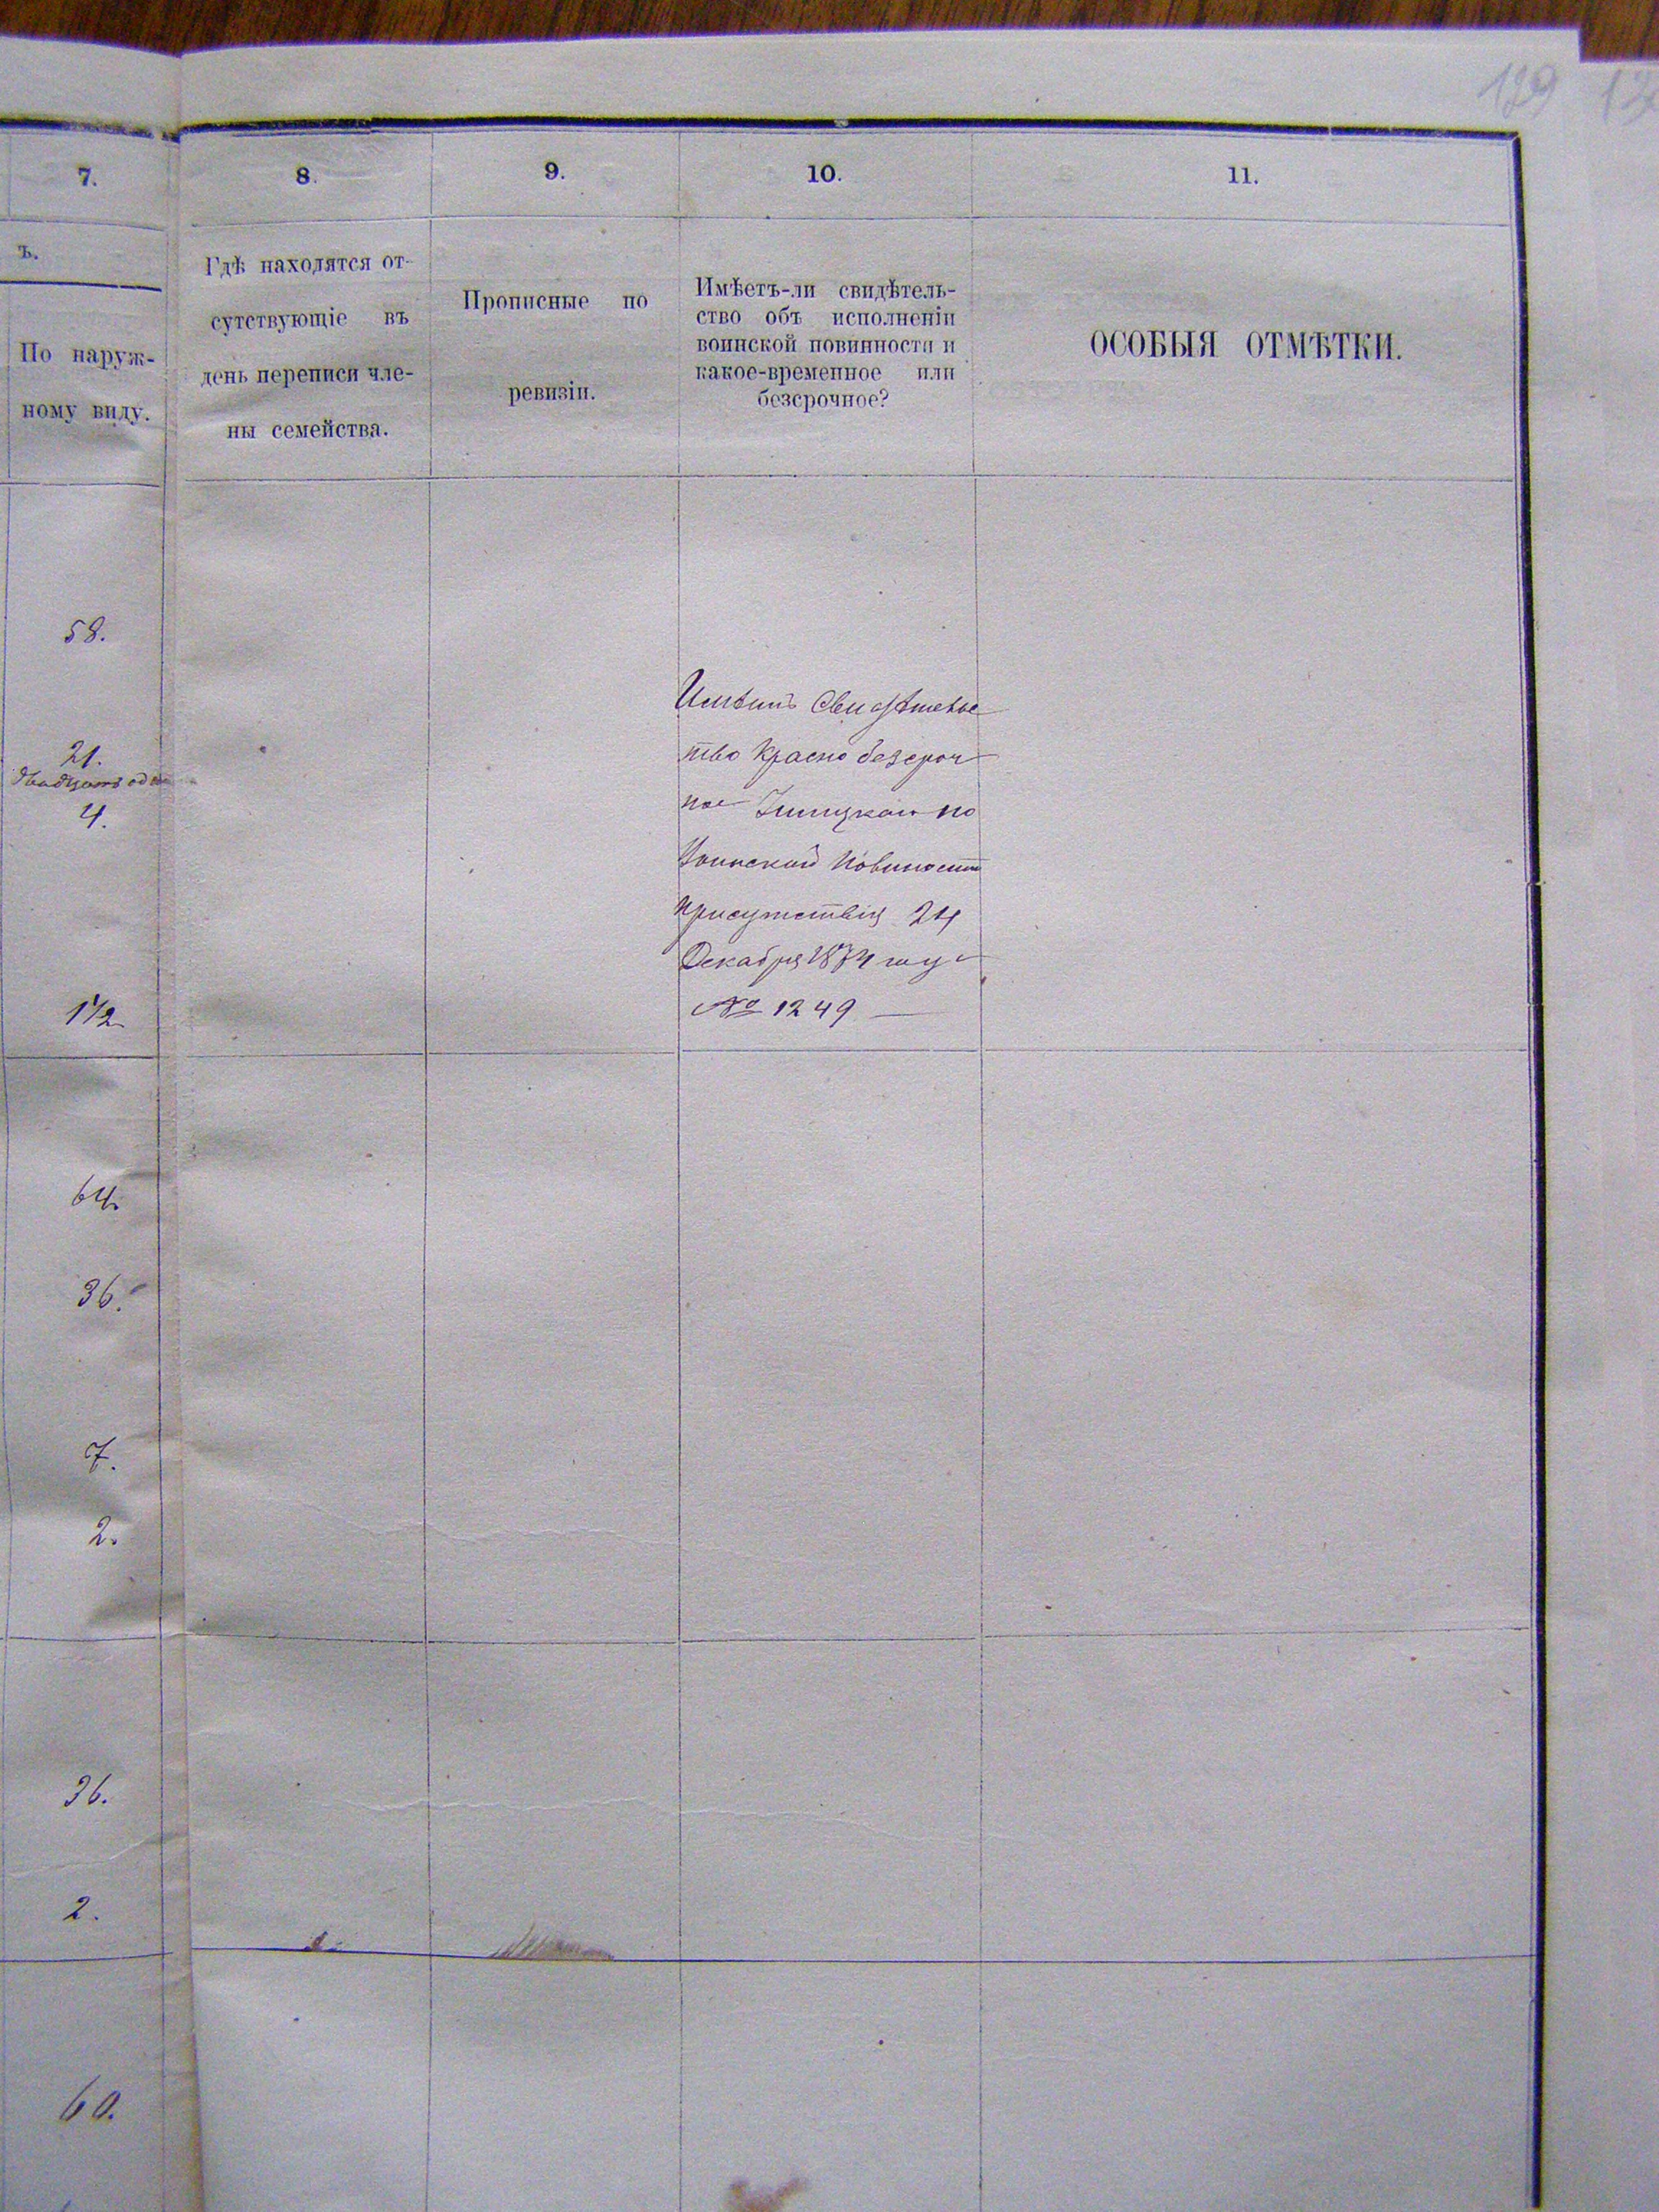 129
7.
8.
9.
10.
11.
ъ.
По наруж-
ному виду.
Гдѣ находятся от-
сутствующіе въ
день переписи чле-
ны семейства.
Прописные по
ревизіи.
Имѣетъ-ли свидѣтель-
ство объ исполненіи
воинской повинности и
какое-временное или
безсрочное?
ОСОБЫЯ ОТМѢТКИ.
58.
21.
двадцать од
4.
1 1/2
64.
36.
7.
2.
36.
2.
60.
Имѣитъ Свидѣтельс
тво Красно безсроч
ное по
Воинской Повиности
присутствія 24
Декабря 1874 году
№ 1249